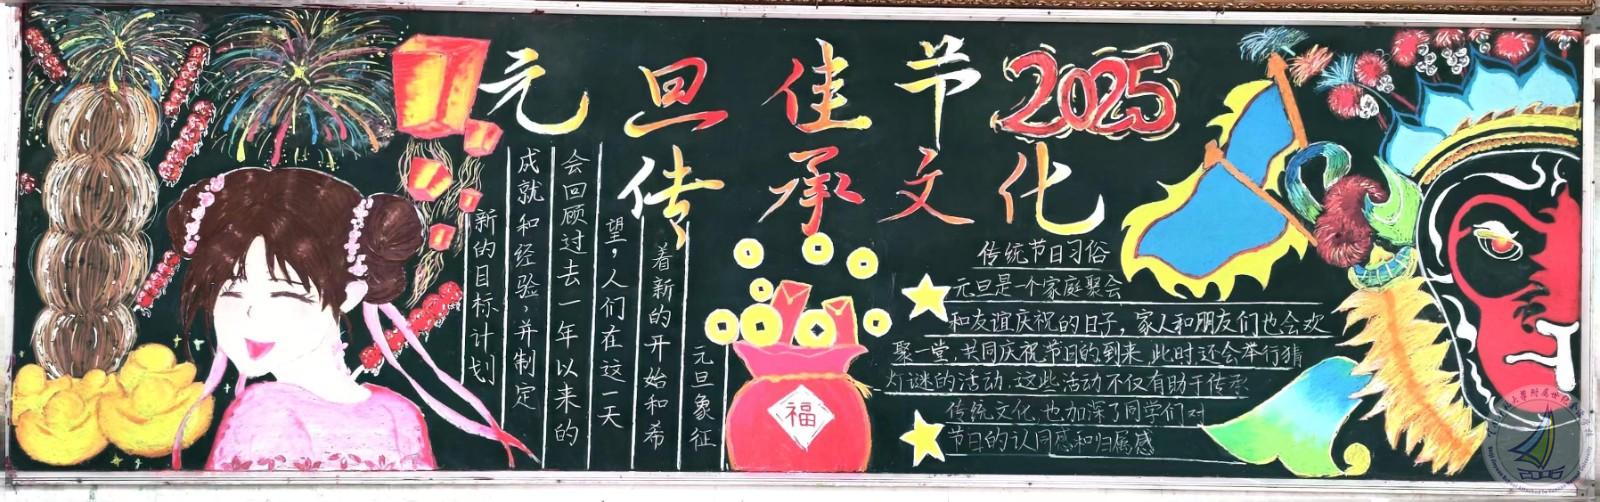 元旦佳节2025
传承文化
元旦象征
着新的开始和希
望，人们在这一天
会回顾过去一年以来的
成就和经验，并制定
新的目标计划
福
传统节日习俗
元旦是一个家庭聚会
和友谊庆祝的日子，家人和朋友们也会欢
聚一堂，共同庆祝节日的到来，此时还会举行猜
灯谜的活动，这些活动不仅有助于传承
传统文化，也加深了同学们对
节日的认同感和归属感